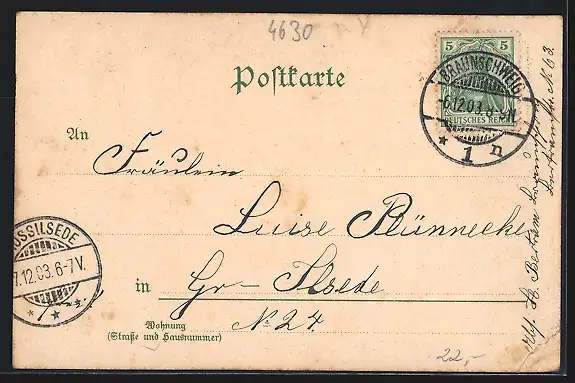 4630
Postkarte
5 5
DEUTSCHES REICH
BRAUNSCHWEIG
6.12.03.
* 1 n
An
Fräulein
Luise Plünnecke
in Gr- Ilsede
No 24.
Wohnung
(Straße und Hausnummer)
OSSILSEDE
7.12.03.6-7V.
22,-